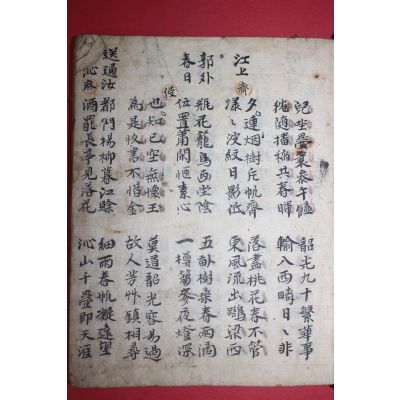 兒坐疊裳參午饁
随播穀共春暉
韶光九十繁華事
輸入西疇日〻非
江上
齊
夕連烟樹片帆齊
漾〻波紋日影低
落盡桃花春不管
東風流出鷁梁西
郭外
春日
侵
瓶花籠馬西坐陰
位置蕭閑愜素心
五畝樹桑春雨滴
一樽蒭麥夜燈深
也知已空無懷王
為是收書不惜金
莫道韶光容易過
故人芳艸鎮相尋
送通汝
沁麻
都門楊柳暮江賖
酒罷長亭見落花
細雨春帆凝遠望
沁山千疊即天涯